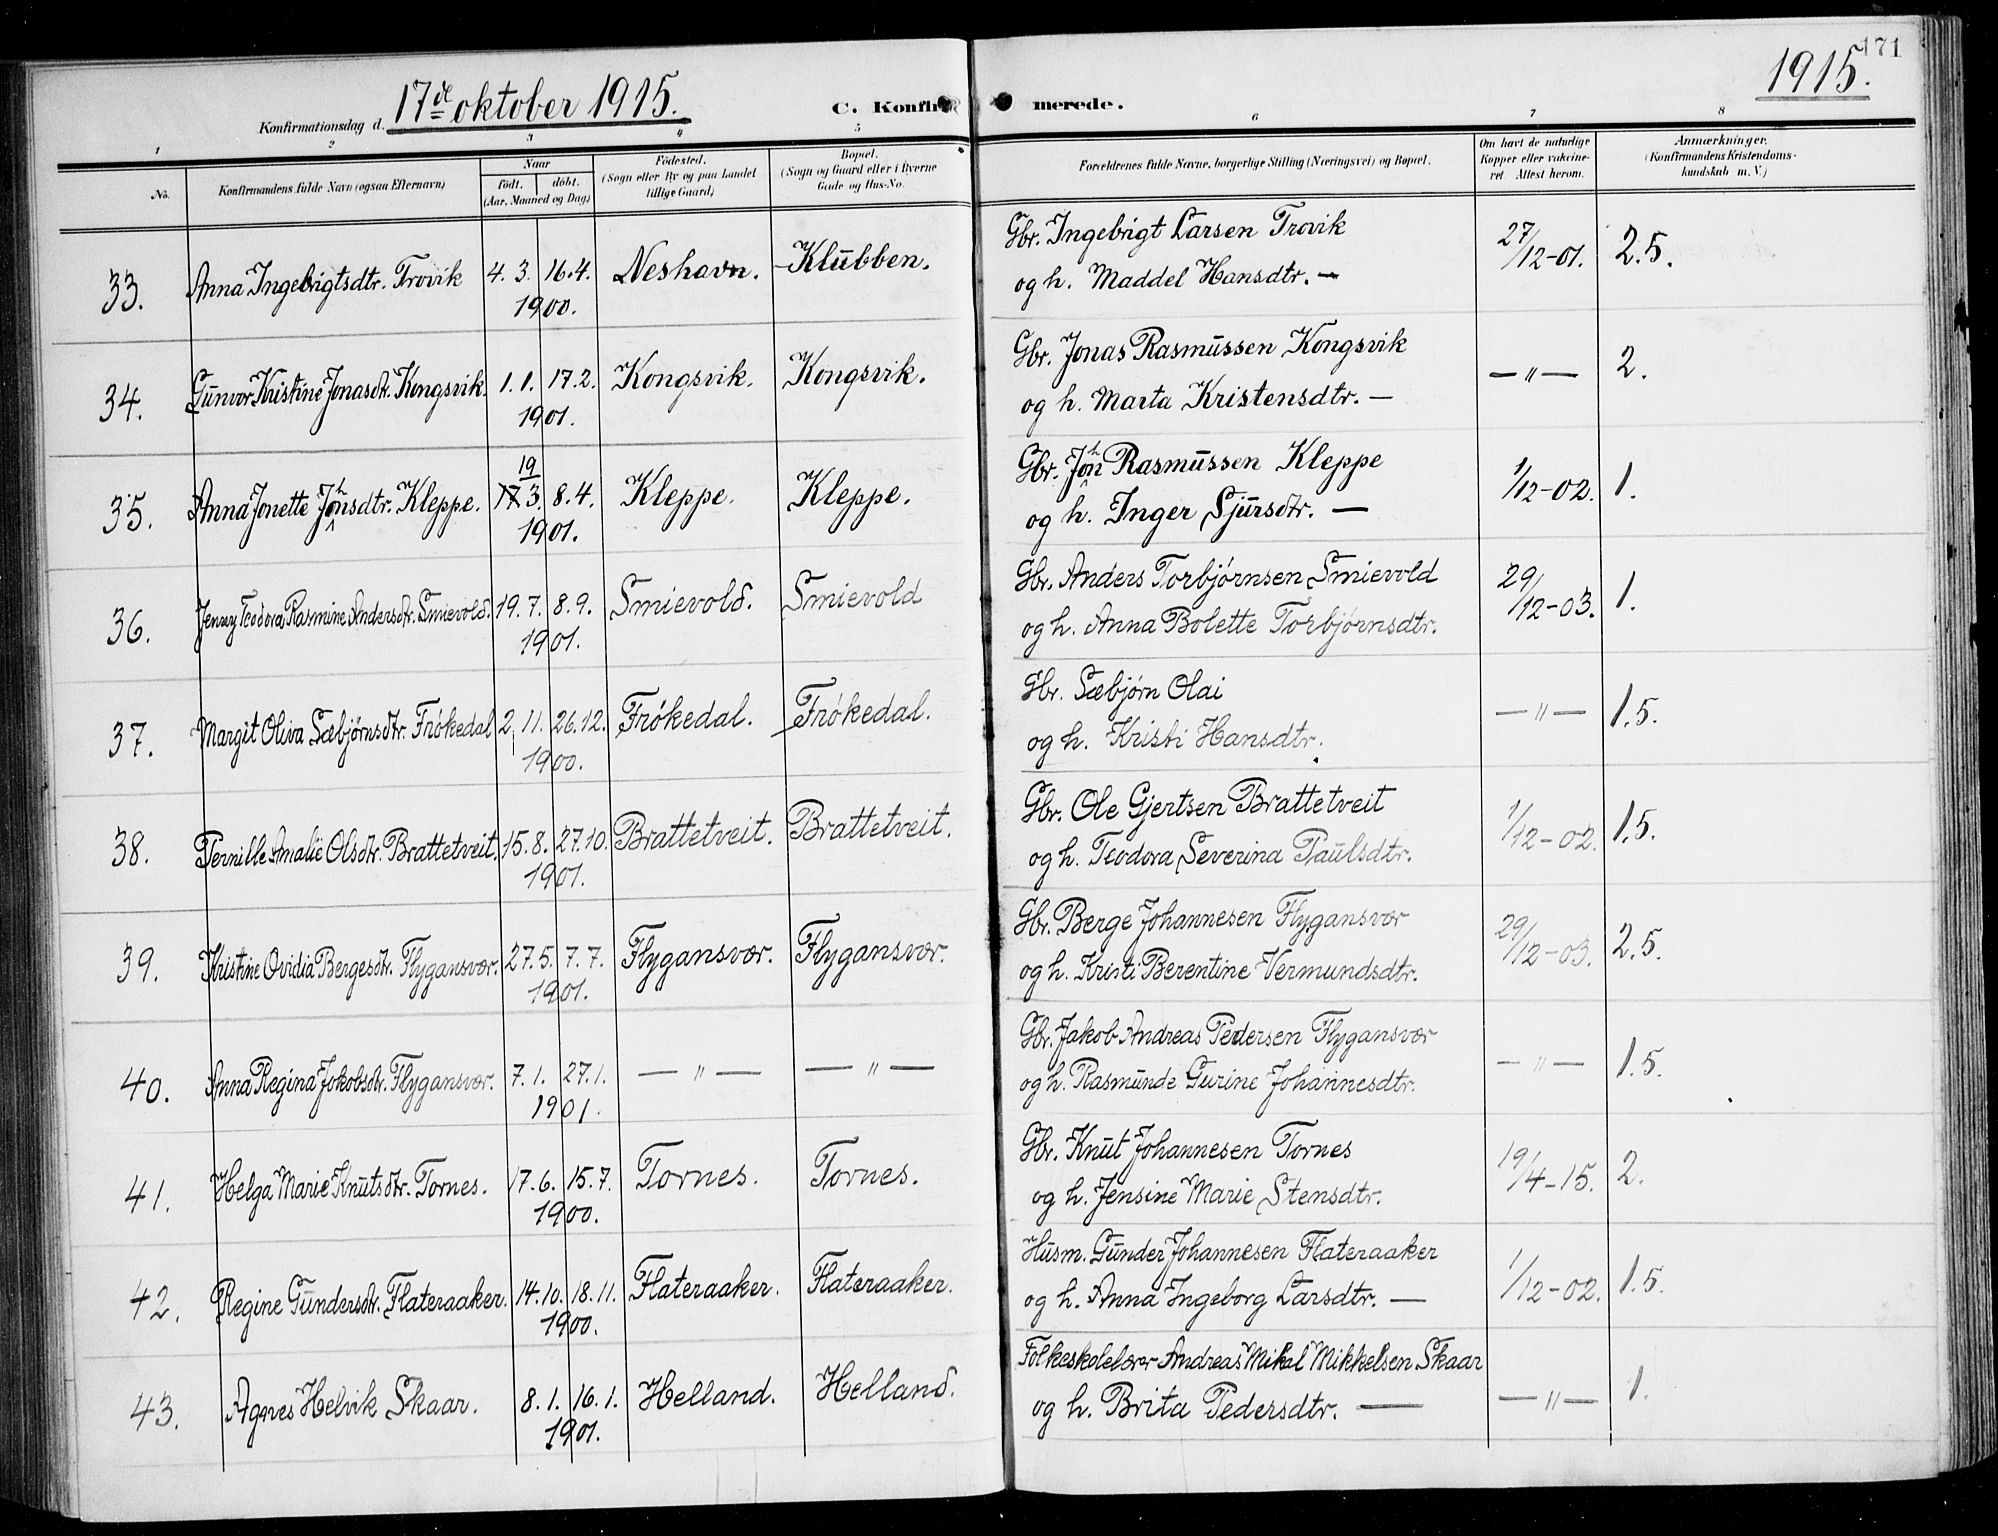 171
1915.
Konfirmationsdag d. 17de oktober 1915.
C. Konfir merede.
1 2 3 4 5 6 7 8
No.
Konfirmandens fulde Navn (ogsaa Efternavn)
Naar
født. døbt.
(Aar, Maaned og Dag)
Fødested.
(Sogn eller By og paa Landet
tillige Gaard)
Bopæl.
(Sogn og Gaard eller i Byerne
Gade og Hus-No.
Forældrenes fulde Navne, borgerlige Stilling (Næringsvei) og Bopæl.
Om havt de naturlige
Kopper eller vakcine-
ret. Attest herom.
Anmærkninger.
(Konfirmandens Kristendoms-
kundskab m. V.)
33. Anna Ingebrigtsdtr. Trovik 4. 3. 16.4. Neshavn. Klubben. Gbr. Ingebrigt Larsen Trovik 27/12-01. 2.5.
1900. og h. Maddel Hansdtr. —
34. Gunvor Kristine Jonasdtr. Kongsvik. 1.1. 17.2. Kongsvik. Kongsvik. Gbr. Jonas Rasmussen Kongsvik — " — 2.
1901. og h. Marta Kristensdtr. —
19
35. Anna Jonette Johnsdtr. Kleppe. 17 3. 8.4. Kleppe. Kleppe. Gbr. John Rasmussen Kleppe 1/12-02. 1.
1901. og h. Inger Sjursdtr. —
36. Jenny Teodora Rasmine Andersdtr. Smievold. 19.7. 8.9. Smievold. Smievold Gbr. Anders Torbjørnsen Smievold 29/12-03. 1.
1901. og h. Anna Bolette Torbjørnsdtr.
37. Margit Oliva Sæbjørnsdtr. Frøkedal 2. 11. 26.12. Frøkedal. Frøkedal. Gbr. Sæbjørn Olai — " — 1.5.
1900. og h. Kristi Hansdtr.
38. Pernille Amalie Olsdtr. Brattetveit. 15.8. 27.10. Brattetveit. Brattetveit. Gbr. Ole Gjertsen Brattetveit 1/12-02. 1.5.
1901. og h. Teodora Severina Paulsdtr.
39. Kristine Ovidia Bergesdtr. Flygansvær. 27.5. 7.7. Flygansvær. Flygansvær. Gbr. Berge Johannesen Flygansvær 29/12-03. 2.5.
1901. og h. Kristi Berentine Vermundsdtr.
40. Anna Regina Jakobsdtr. Flygansvær. 7.1. 27.1. — " — — " — Gbr. Jakob Andreas Pedersen Flygansvær — " — 1.5.
1901. og h. Rasmunde Gurine Johannesdtr.
41. Helga Marie Knutsdtr. Tornes. 17.6. 15.7. Tornes. Tornes. Gbr. Knut Johannesen Tornes 19/4-15. 2.
1900. og h. Jensine Marie Stensdtr.
42. Regine Gundersdtr. Flateraaker. 14.10. 18.11. Flateraaker. Flateraaker. Husm. Gunder Johannesen Flateraaker 1/12-02. 1.5.
1900. og h. Anna Ingeborg Larsdtr. —
43. Agnes Helvik Skaar. 8.1. 16.1. Helland. Helland. Folkeskolelærer Andreas Mikal Mikkelsen Skaar — " — 1.
1901. og h. Brita Pedersdtr. —